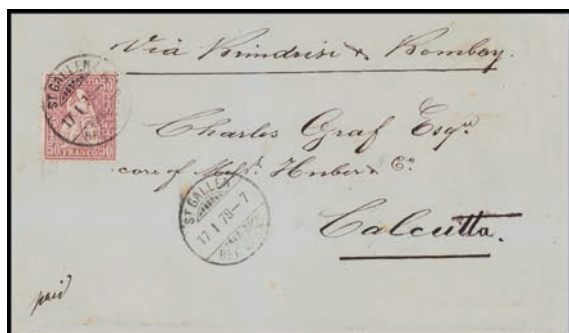 Via Brindisi & Bombay.
ST. GALLEN
17 I 7
50 50
50 FRANCO 50
Charles Graf Esqre
care of Messrs. Huber & Co.
ST. GALLEN
17 I 79-7
Calcutta.
paid